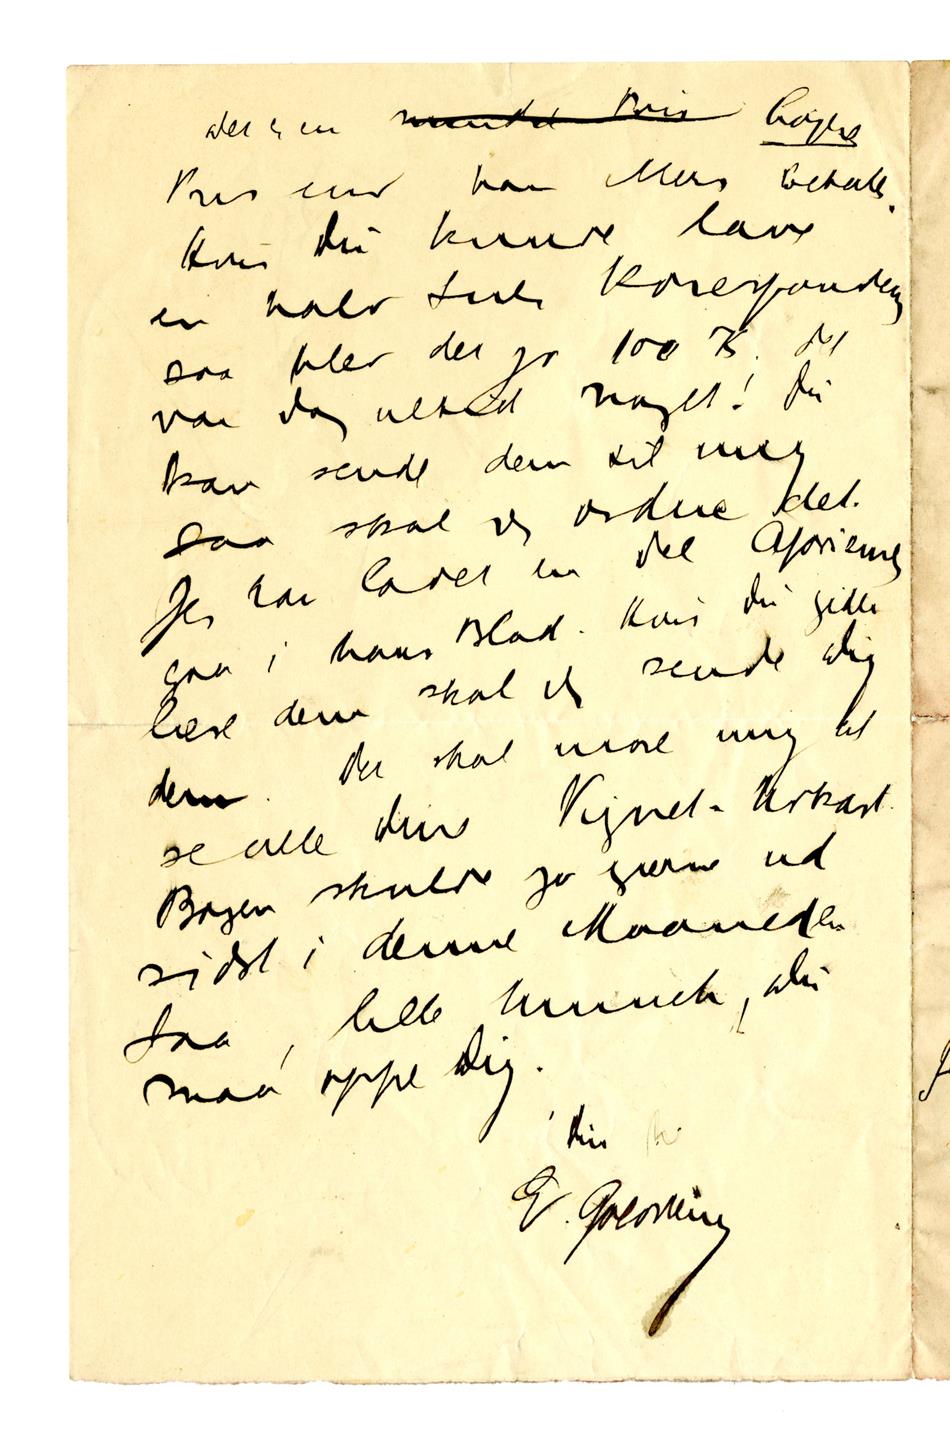 det er en ~~mindre Pris~~ højere
Pris end han ellers betaler.
Hvis Du kunde lave
en halv Snes Korrespondeng
saa blev det jo 100 K. det
var dog altid noget! Du
kan sende dem til mig
saa skal jeg ordne det.
Jeg har ladet en del Aforismer
gaa i hans Blad. Hvis Du gider
læse dem skal jeg sende Dig
dem. Det skal more mig at
se alle dine Vignet-Udkast.
Bogen skulde jo gerne ud
sidst i denne Maaned.
Saa, lille Munch, Du
maa oppe Dig.
Din
E. Goldstein